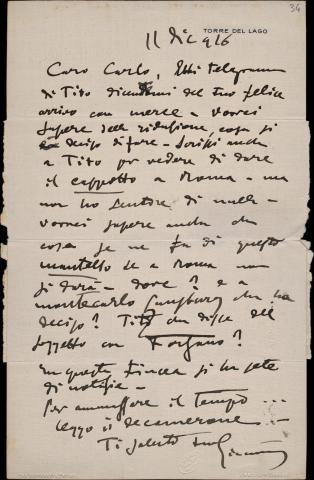 34
TORRE DEL LAGO
11 Dic 916
Caro Carlo, Ebbi telegramma
di Tito dicendomi del tuo felice
arrivo con merce – vorrei
sapere della riduzione, cosa si
decise di fare – scrissi anche
a Tito per vedere di dare
il cappotto a Roma – ma
non ho sentore di nulla –
vorrei sapere anche che
cosa se ne fa di questo
mantello se a Roma non
si darà – dove? e a
montecarlo Gunsburg che ha
deciso? Tito che disse del
soggetto con Forzano?
In questa si ha sete
di notizie –
Per ammazzare il tempo ...
leggo il decamerone –
Ti saluto tuo Giacomo